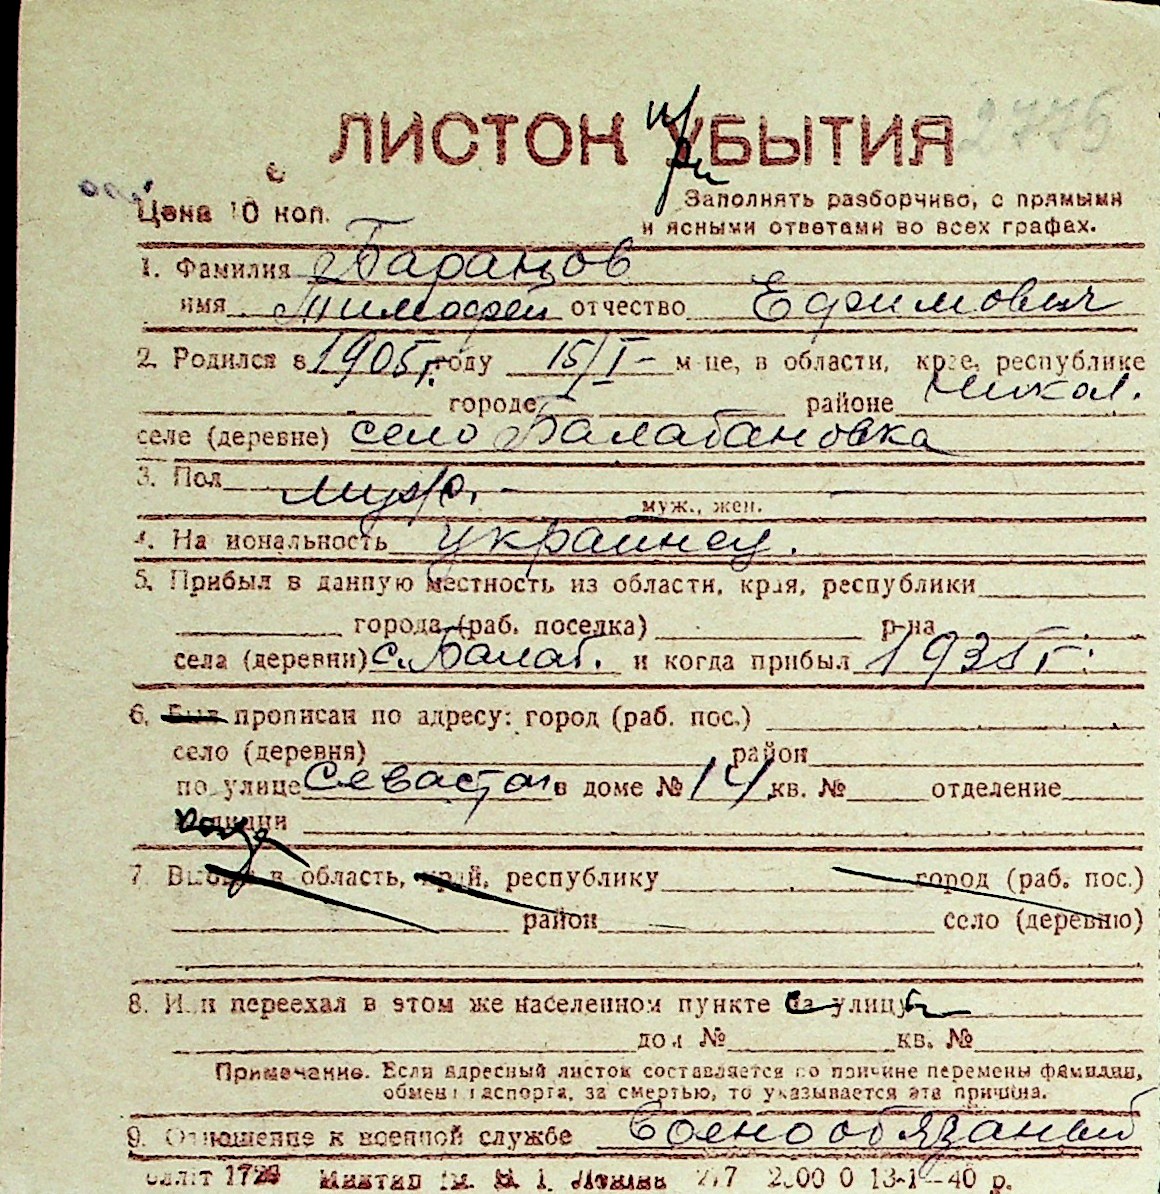 ЛИСТОК УБЫТИЯ 2776
при
Цена 10 коп.
Заполнять разборчиво, с прямыми
и ясными ответами во всех графах.
1. Фамилия Баранов
имя Тимофей отчество Ефимович
2. Родился в 1905 г. году 15/I - м-це, в области, крае, республике
городе районе Никол.
селе (деревне) село Балабановка
3. Пол муж. -
муж., жен.
4. Национальность украинец.
5. Прибыл в данную местность из области, края, республики
города (раб. поселка) р-на
села (деревни) с. Балаб. и когда прибыл 1935 г.
6. Был прописан по адресу: город (раб. пос.)
село (деревня) район
по улице Севастоп в доме № 14 кв. № отделение
милиции
7. Выбыл в область, край, республику город (раб. пос.)
район село (деревню)
8. Или переехал в этом же населенном пункте на улицу
дом № кв. №
Примечание. Если адресный листок составляется по причине перемены фамилии,
обмена паспорта, за смертью, то указывается эта причина.
9. Отношение к военной службе военообязаный
1723 им. Ленина 13-1-40 р.